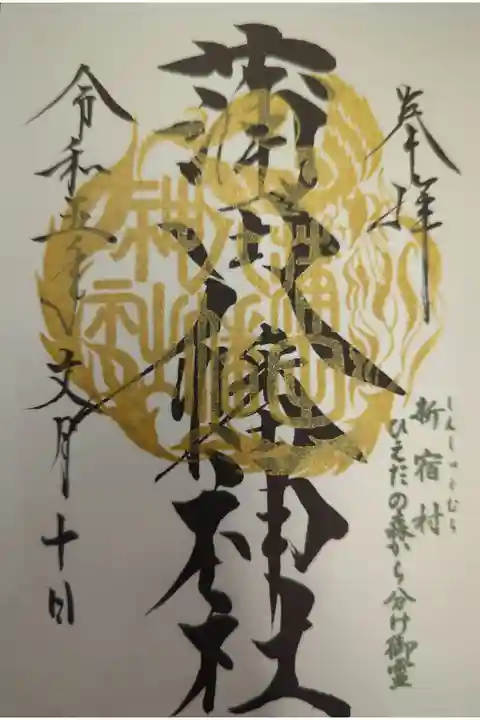 奉拝
蒲田八幡神社
しんしゅくむら
新宿村
ひえだの森から分け御霊
令和五年文月十日